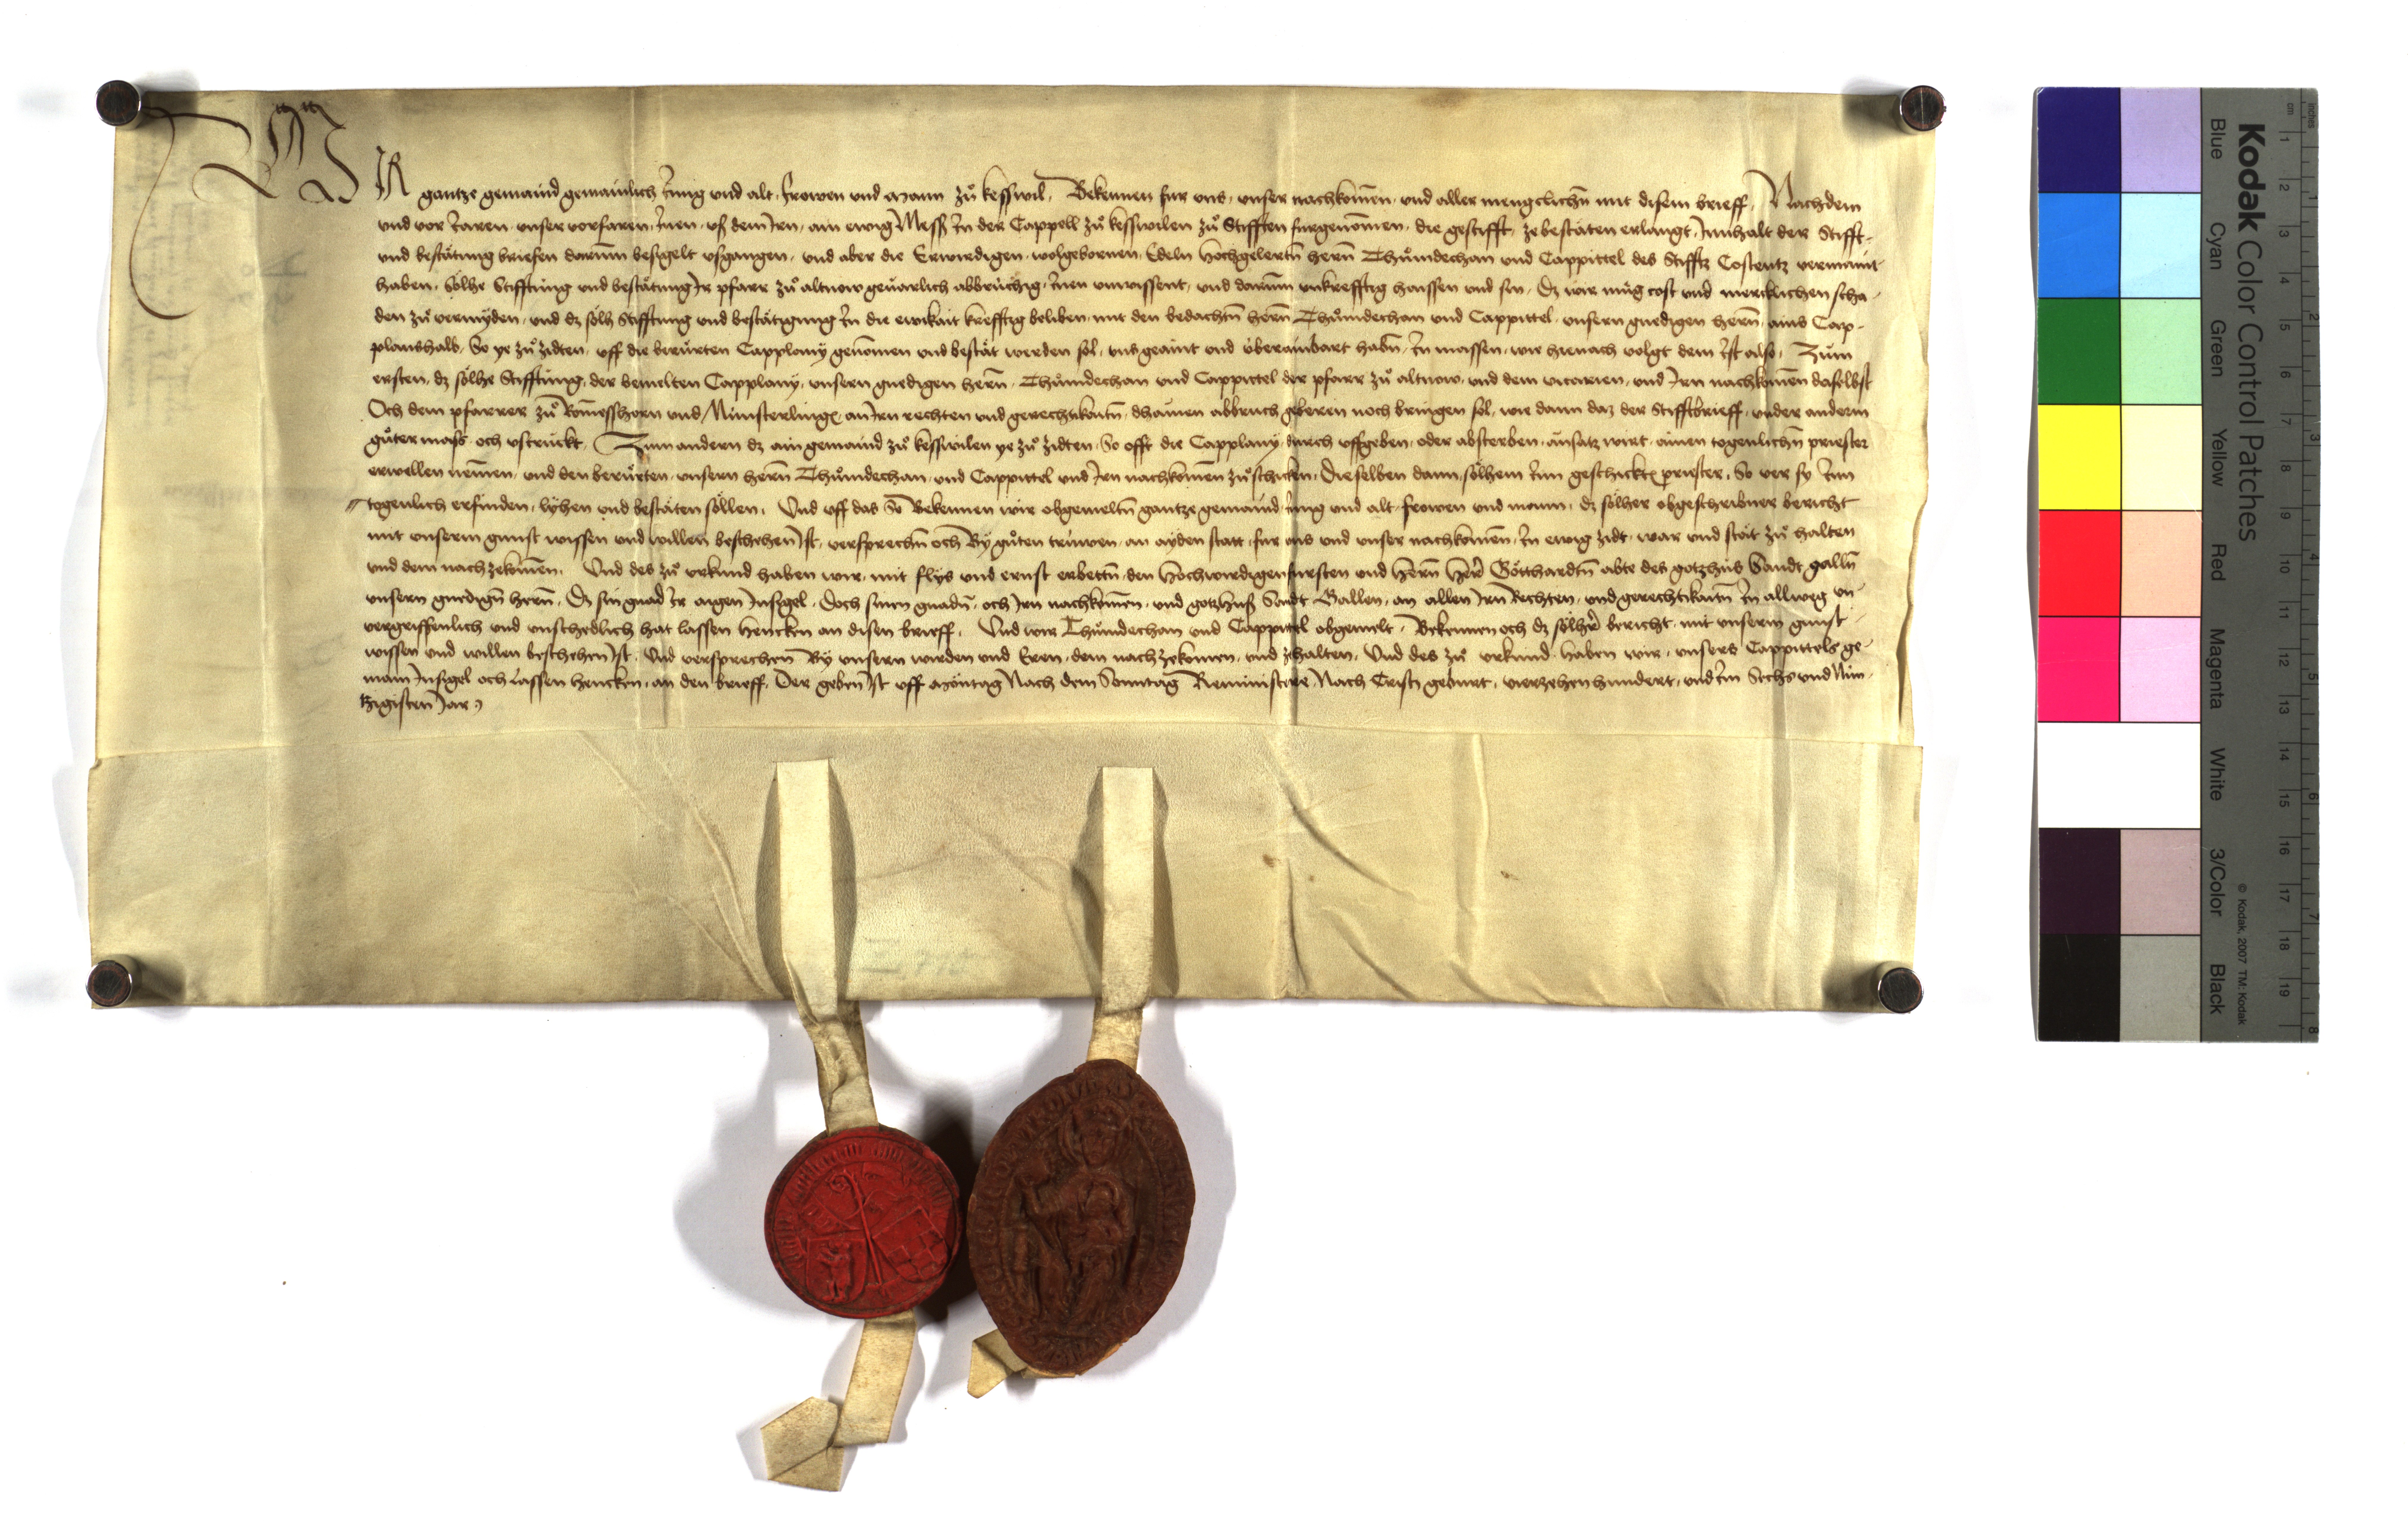 WIR gantze gemaind gemainlich Jung und alt, frowen und mann zuͦ kesswil, Bekennen fur uns, unser nachkomen, und aller mengclichn mit disem brieff, Nachdem
und vor Jaren, unser vorfaren, Jnen, uß dem Jrn, ain ewig Mess Jn der Cappell zuͦ kesswilen zuͦ Stifften furgenomen, die gestifft, ze bestäten erlangt, Jnnhalt der Stifft-
und bestätung briefen darum besigelt ußgangen, und aber die Erwirdigen, wolgebornen, Edeln hochgelertn hern Thuͦmdechan und Cappittel des Stiffts Costentz vermaint
haben, sölhe Stifftung und bestätung Jr pfarr zuͦ altnow geuarlich abbrüchig, Jnen unwissent, und darum unkrefftig haissen und sin, Dz wir nuͦ cost und mercklichen scha-
den zuͦ vermyden, und dz sölh Stifftung und bestätigung Jn die ewikait krefftig beliben, mit den bedachtn hern Thuͦmdechan und Cappittel, unsern gnedigen hern, ains Cap-
planshalb, So ye zuͦ zidten, uff die berürten Capplany genomen und bestät werden sol, uns geaint und überainbart habn, Jn massen, wir hienach volgt dem Jst also, Zum
ersten, dz sölhe Stifftung, der bemelten Capplany, unsern gnedigen hern, Thuͦmdechan und Cappittel der pfarr zuͦ altnow, und dem vicarien, und Jrn nachkomen daselbst
Och dem pfarrer zuͦ Romesshorn und Münsterling, an Jrn rechten und gerechtikaitn, dhainen abbruch geberen noch bringen sol, wie dann daz der Stifftbrieff, under anderm
guͦter mass, och ustruckt, Zum andern dz ain gemaind zuͦ kesswilen ye zuͦ zidten, So offt die Capplany, durch uffgeben, oder absterben, ainsatz wirt, ainen togenlichn priester
erwellen nemen, und den berürten, unsern hern Thuͦmdechan, und Cappittel und Jrn nachkomen zuͦ schicken, Dieselben dann, sölhem Jnn geschickt priester, So ver sy Jnn
togenlich erfinden, lyhen und bestäten söllen, Und uff das So Bekennen wir obgemeltn gantze gemaind, Jung und alt, frowen und mann, dz sölher obgeschribner bericht
mit unserm gunst wissen und willen beschehen Jst, versprechn och By guͦten trüwen, an ayden statt, fur uns und unser nachkomen, Jn ewig zidt, war und stät zuͦ halten
und dem nach zekomen, Und des zuͦ urkund haben wir, mit flys und ernst erbettn, den hochwirdigen fursten und hern her Götthardtn abte des gotzhus Sandt galln
unsern gnedign hern, Dz sin gnad Jr aigen Jnsigel, Doch sinen gnadn, och Jrn nachkomen, und gotzhuß Sandt Gallen, an allen Jrn Rechten, und gerechtikaitn Jn allweg un-
vergriffenlich und unschedlich hat lassen hencken an disen brieff, Und wir Thuͦmdechan und Cappittel obgemelt, Bekennen och dz sölher bericht, mit unserm gunst
wissen und willen beschehen Jst, Und versprechen By unsern wirden und Eren, dem nach zekomen, und zehalten, Und des zuͦ urkund, haben wir, unsers Cappittels ge-
main Jnsigel och Lassen hencken, an den brieff, Der geben Jst uff Möntag Nach dem Sonntag Reminiscere, Nach Cristi geburt, vierzehenhundert, und Jm Sechs und Nün-
tzigisten Jar
Kodak Color Control Patches
Blue
Cyan
Green
Yellow
Red
Magenta
White
3/Color
Black
© Kodak, 2007 TM: Kodak
inches 1 2 3 4 5 6 7 8
cm 1 2 3 4 5 6 7 8 9 10 11 12 13 14 15 16 17 18 19